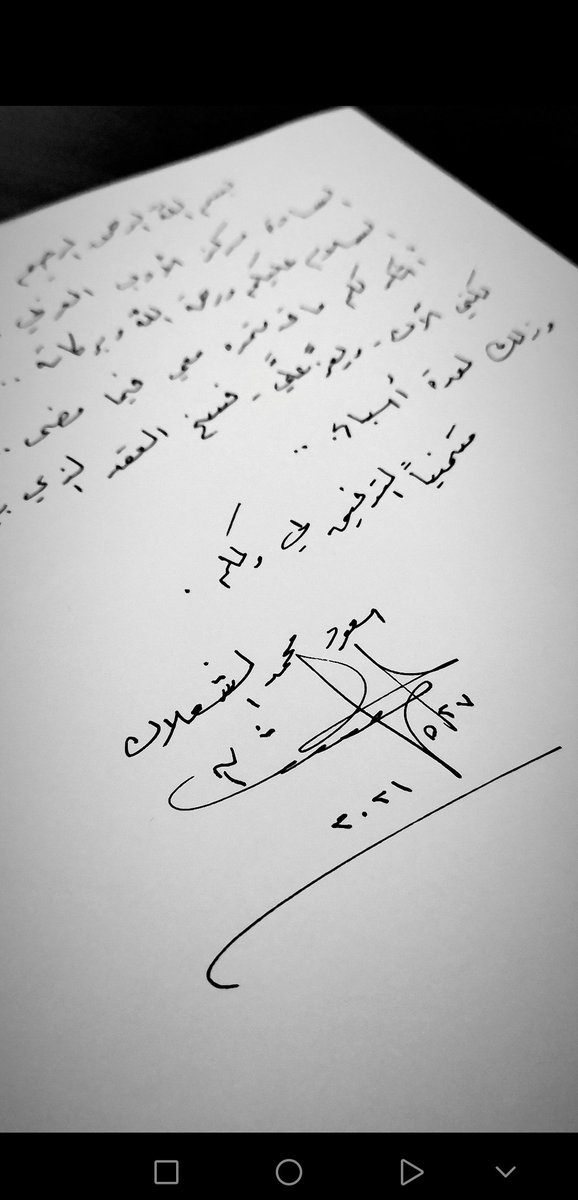 بسم الله الرحمن الرحيم
السادة مركز الأدب العربي
السلام عليكم ورحمة الله وبركاته ..
أشكر لكم ما قدمتموه معي فيما مضى .
لكني الآن - ويعز عليّ - فسخ العقد الذي
وذلك لعدة أسباب ..
متمنياً التوفيق لي ولكم .
سعود محمد الشعلان
٢٠٢١